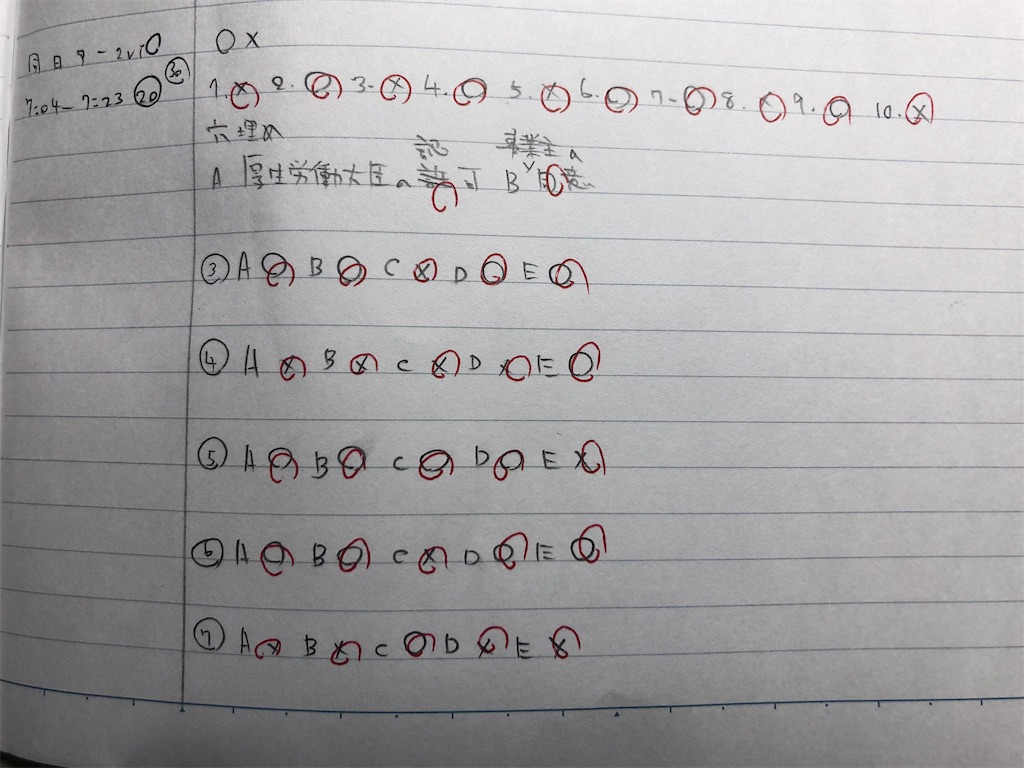 ○ ×
1. × 2. ○ 3. × 4. ○ 5. × 6. ○ 7. ○ 8. × 9. ○ 10. ×
7:04-7:23 20 30
穴埋め
認 事業主の
A 厚生労働大臣の 可 B 同意
③ A ○ B ○ C × D ○ E ○
④ A × B × C × D × E ○
⑤ A ○ B ○ C ○ D ○ E ×
⑥ A ○ B ○ C × D ○ E ○
⑦ A × B × C ○ D × E ×